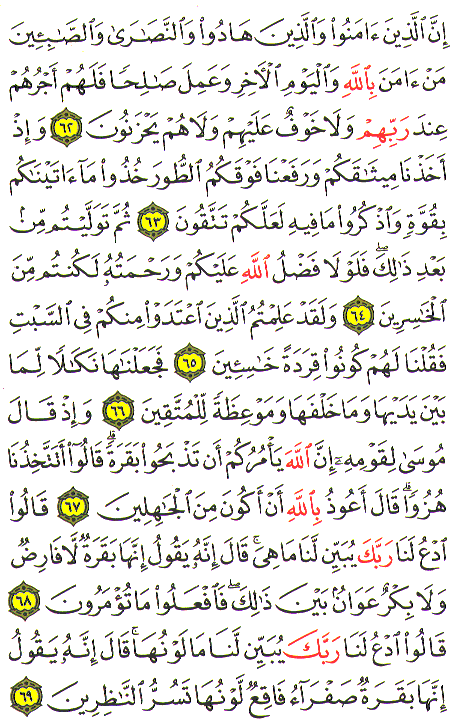 إِنَّ ٱلَّذِينَ ءَامَنُوا۟ وَٱلَّذِينَ هَادُوا۟ وَٱلنَّصَـٰرَىٰ وَٱلصَّـٰبِـِٔينَ
مَنْ ءَامَنَ بِٱللَّهِ وَٱلْيَوْمِ ٱلْـَٔاخِرِ وَعَمِلَ صَـٰلِحًا فَلَهُمْ أَجْرُهُمْ
عِندَ رَبِّهِمْ وَلَا خَوْفٌ عَلَيْهِمْ وَلَا هُمْ يَحْزَنُونَ ٦٢ وَإِذْ
أَخَذْنَا مِيثَـٰقَكُمْ وَرَفَعْنَا فَوْقَكُمُ ٱلطُّورَ خُذُوا۟ مَآ ءَاتَيْنَـٰكُم
بِقُوَّةٍ وَٱذْكُرُوا۟ مَا فِيهِ لَعَلَّكُمْ تَتَّقُونَ ٦٣ ثُمَّ تَوَلَّيْتُم مِّنۢ
بَعْدِ ذَٰلِكَ ۖ فَلَوْلَا فَضْلُ ٱللَّهِ عَلَيْكُمْ وَرَحْمَتُهُۥ لَكُنتُم مِّنَ
ٱلْخَـٰسِرِينَ ٦٤ وَلَقَدْ عَلِمْتُمُ ٱلَّذِينَ ٱعْتَدَوْا۟ مِنكُمْ فِى ٱلسَّبْتِ
فَقُلْنَا لَهُمْ كُونُوا۟ قِرَدَةً خَـٰسِـِٔينَ ٦٥ فَجَعَلْنَـٰهَا نَكَـٰلًا لِّمَا
بَيْنَ يَدَيْهَا وَمَا خَلْفَهَا وَمَوْعِظَةً لِّلْمُتَّقِينَ ٦٦ وَإِذْ قَالَ
مُوسَىٰ لِقَوْمِهِۦٓ إِنَّ ٱللَّهَ يَأْمُرُكُمْ أَن تَذْبَحُوا۟ بَقَرَةً ۖ قَالُوٓا۟ أَتَتَّخِذُنَا
هُزُوًا ۖ قَالَ أَعُوذُ بِٱللَّهِ أَنْ أَكُونَ مِنَ ٱلْجَـٰهِلِينَ ٦٧ قَالُوا۟
ٱدْعُ لَنَا رَبَّكَ يُبَيِّن لَّنَا مَا هِىَ ۚ قَالَ إِنَّهُۥ يَقُولُ إِنَّهَا بَقَرَةٌ لَّا فَارِضٌ
وَلَا بِكْرٌ عَوَانٌۢ بَيْنَ ذَٰلِكَ ۖ فَٱفْعَلُوا۟ مَا تُؤْمَرُونَ ٦٨
قَالُوا۟ ٱدْعُ لَنَا رَبَّكَ يُبَيِّن لَّنَا مَا لَوْنُهَا ۚ قَالَ إِنَّهُۥ يَقُولُ
إِنَّهَا بَقَرَةٌ صَفْرَآءُ فَاقِعٌ لَّوْنُهَا تَسُرُّ ٱلنَّـٰظِرِينَ ٦٩